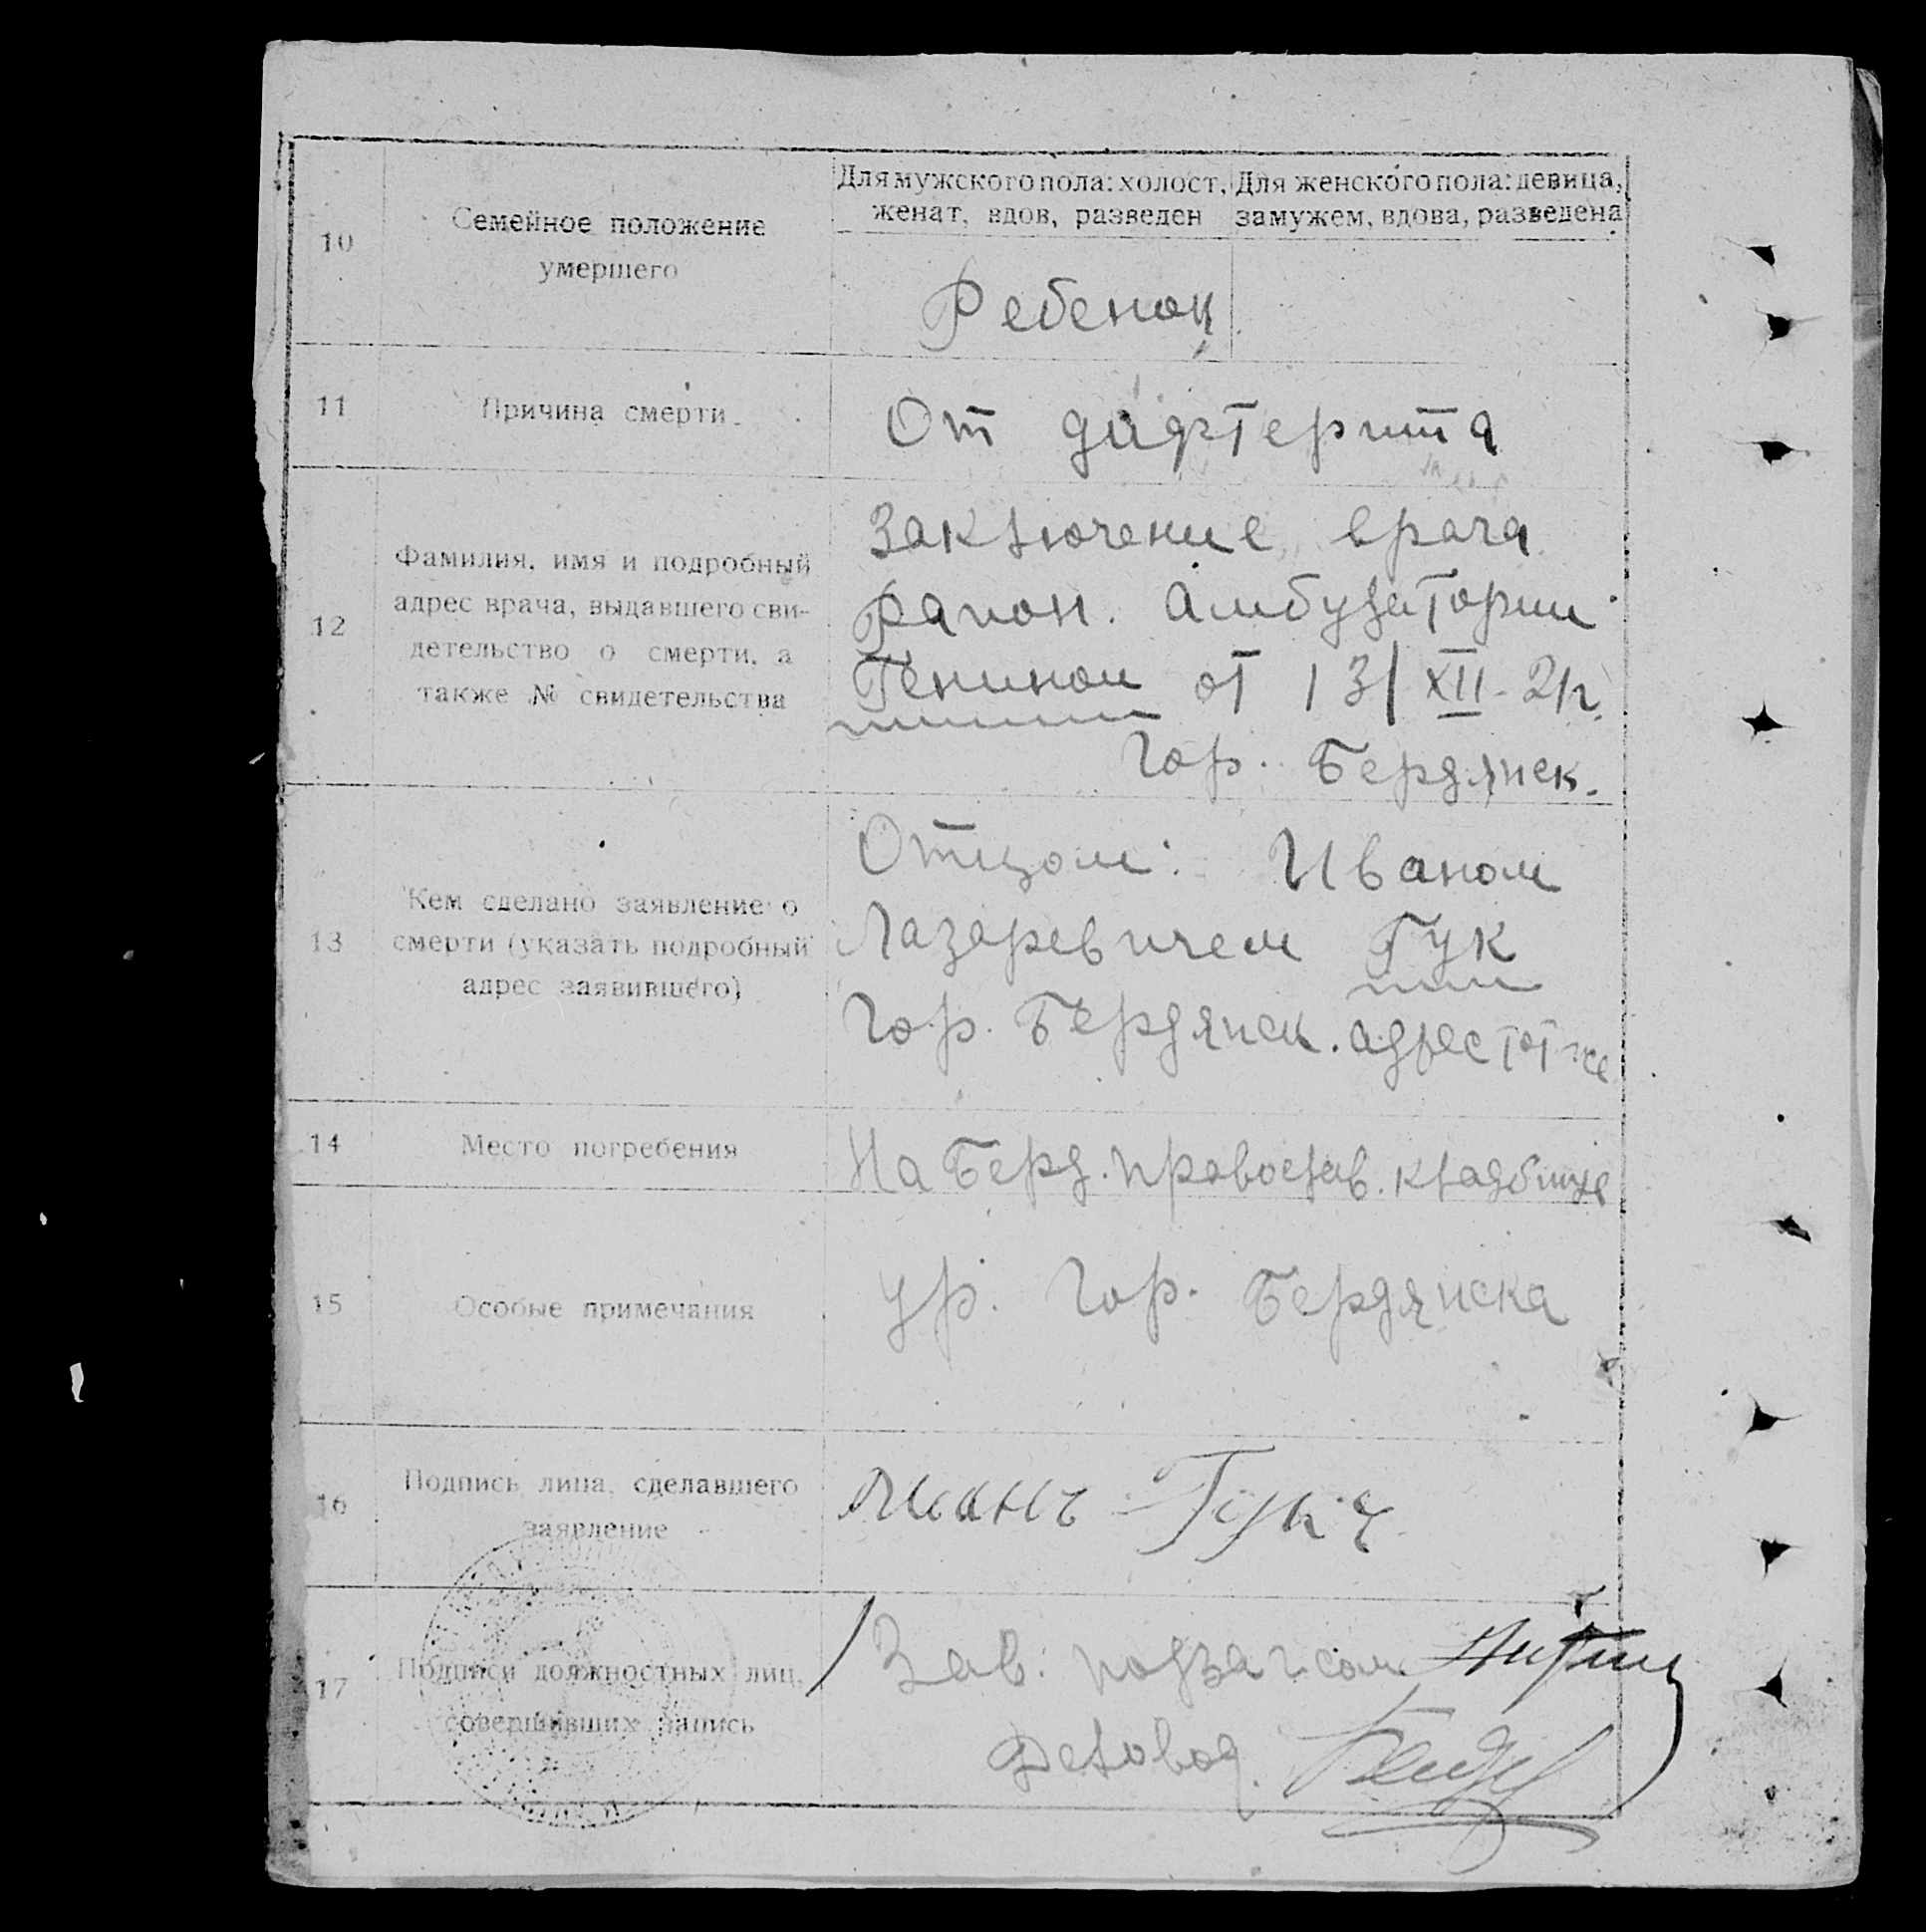 Для мужского пола: холост, женат, вдов, разведен
Для женского пола: девица, замужем, вдова, разведена
10
Семейное положение
умершего
Ребенок
11
Причина смерти
От дифтерита
12
Фамилия, имя и подробный
адрес врача, выдавшего сви-
детельство о смерти, а
также № свидетельства
Заключение врача
район. амбулатории
от 13/XII-21г.
Гор. Бердянск.
13
Кем сделано заявление о
смерти (указать подробный
адрес заявившего)
Отцом: Иваном
Лазаревичем Гук
Гор. Бердянск. адрес тот же
14
Место погребения
На Берд. православ. кладбище
15
Особые примечания
Ур. Гор. Бердянска
16
Подпись лица, сделавшего
заявление
Гукъ
17
Подписи должностных лиц,
совершивших запись
Зав. подзагсом
Деловод.